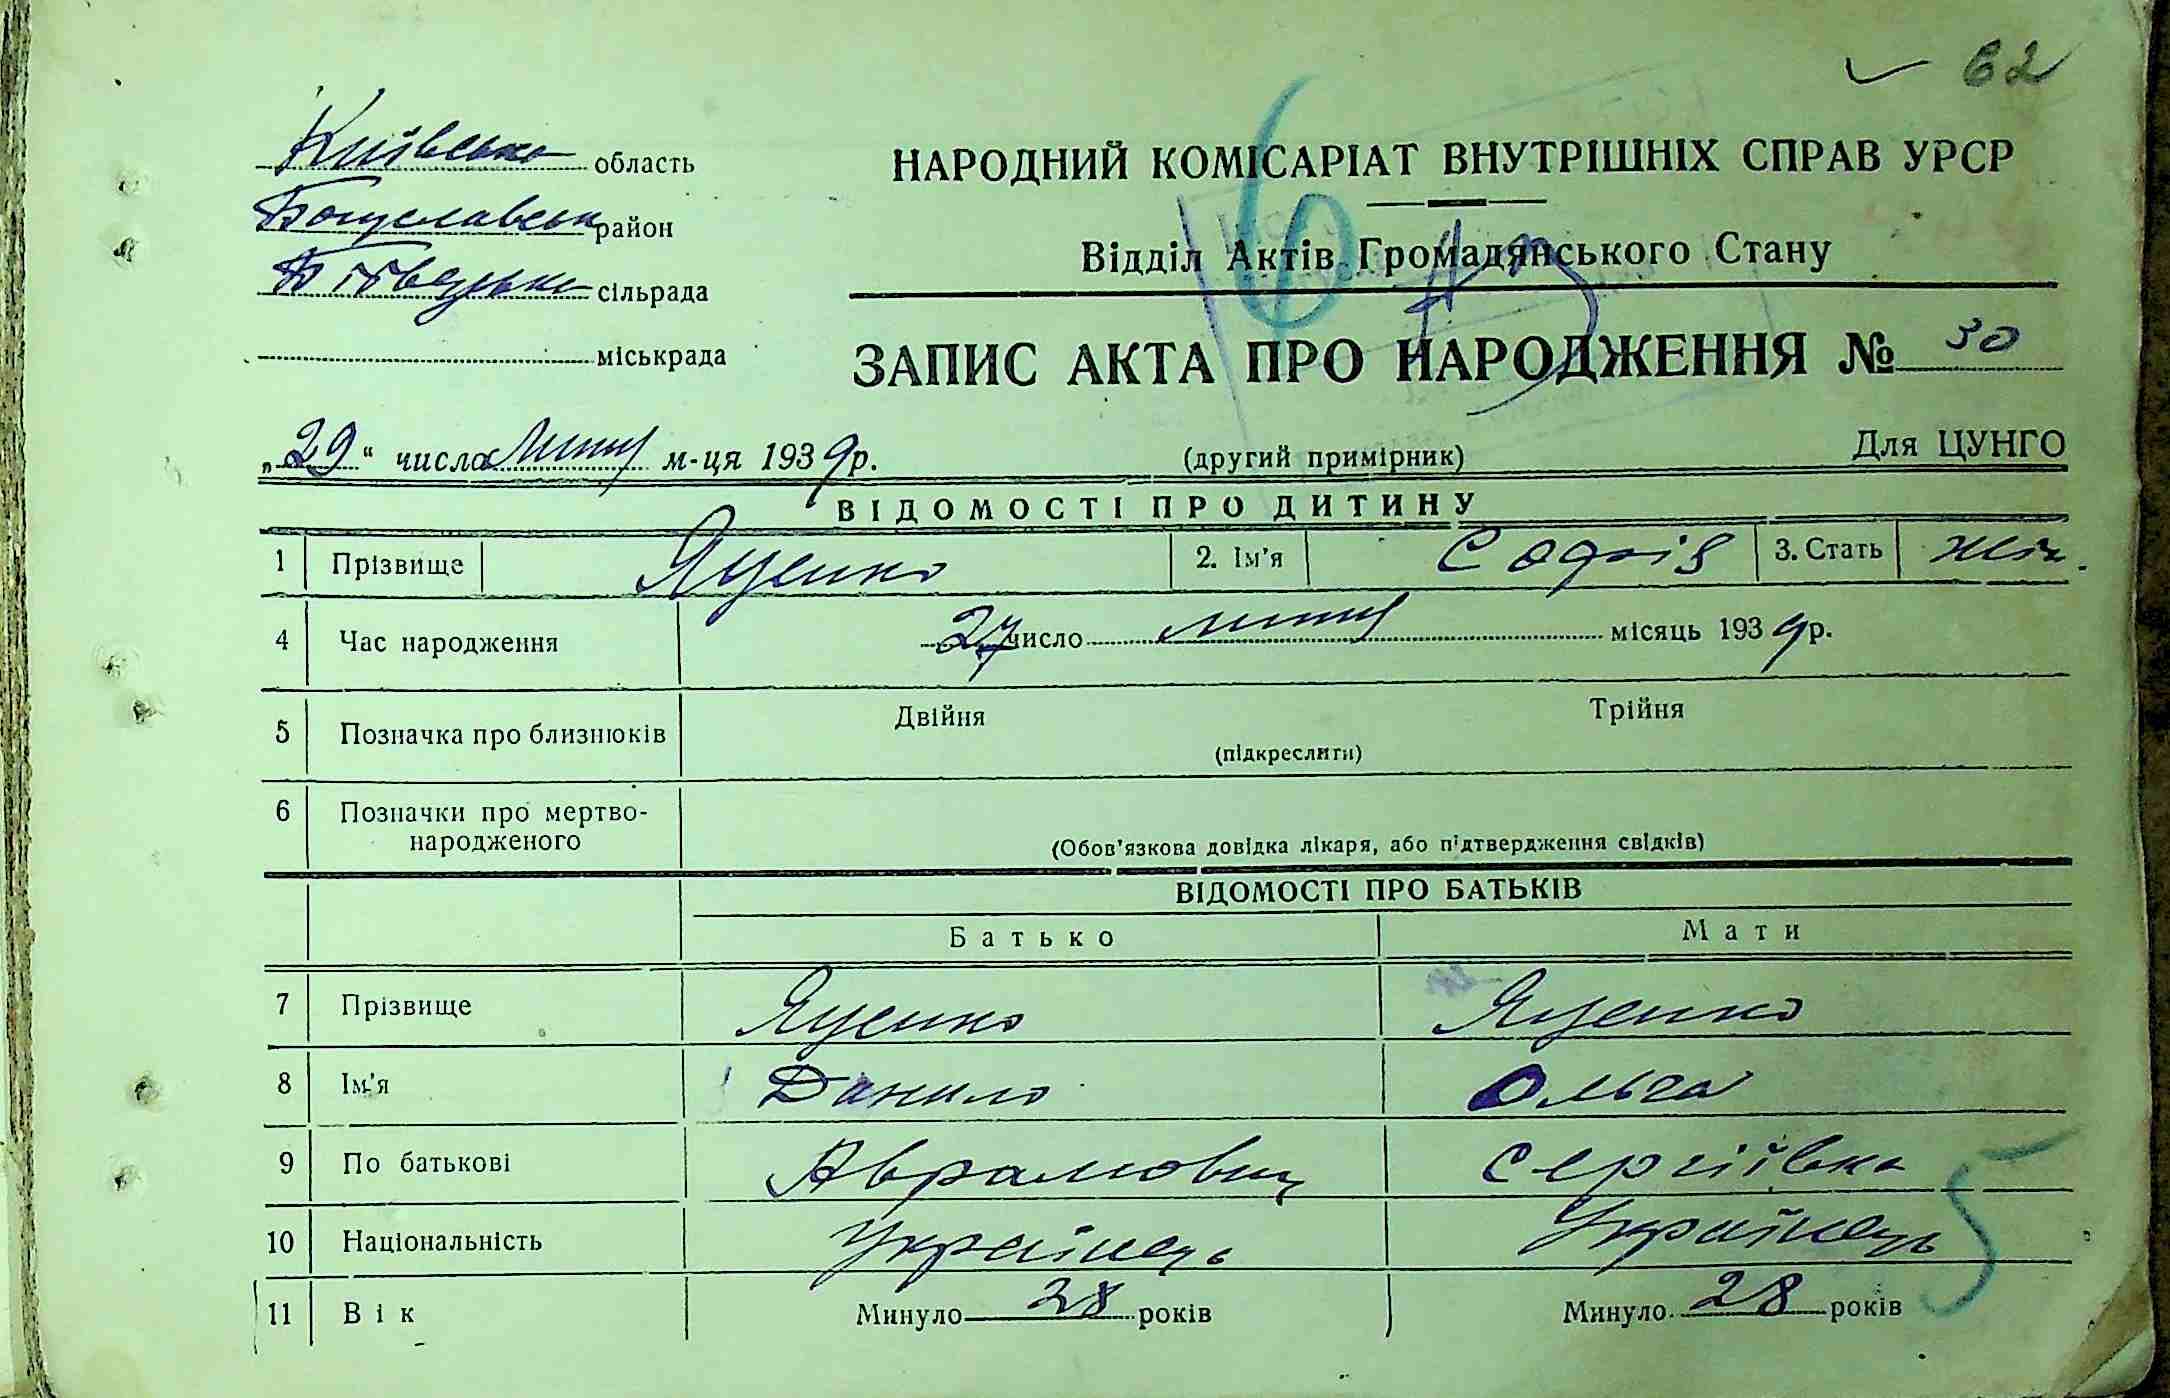 62
Київська область
НАРОДНИЙ КОМІСАРІАТ ВНУТРІШНІХ СПРАВ УРСР
Богуславськ район
Відділ Актів Громадянського Стану
сільрада
міськрада
ЗАПИС АКТА ПРО НАРОДЖЕННЯ № 30
„29“ числа липня м-ця 1939 р.
(другий примірник)
Для ЦУНГО
ВІДОМОСТІ ПРО ДИТИНУ
1 Прізвище Яценко 2. Ім'я Софія 3. Стать жін.
4 Час народження 27 число липня місяць 1939 р.
5 Позначка про близнюків Двійня Трійня
(підкреслити)
6 Позначки про мертво-
народженого
(Обов'язкова довідка лікаря, або підтвердження свідків)
ВІДОМОСТІ ПРО БАТЬКІВ
Батько Мати
7 Прізвище Яценко Яценко
8 Ім'я Данило Ольга
9 По батькові Аврамович Сергіївна
10 Національність Українець Українець
5
11 Вік Минуло 28 років Минуло 28 років
6